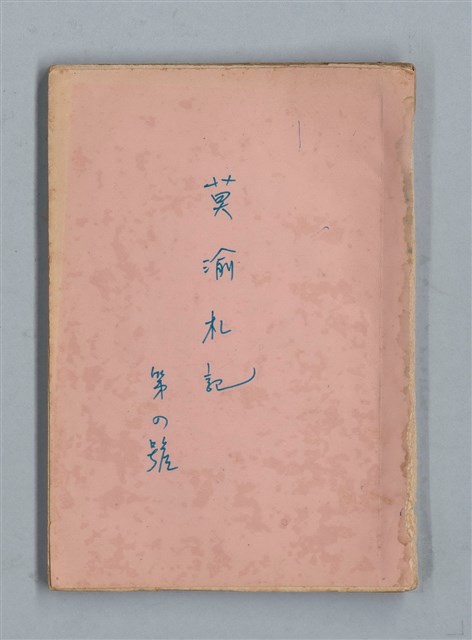 莫渝札記
第の號